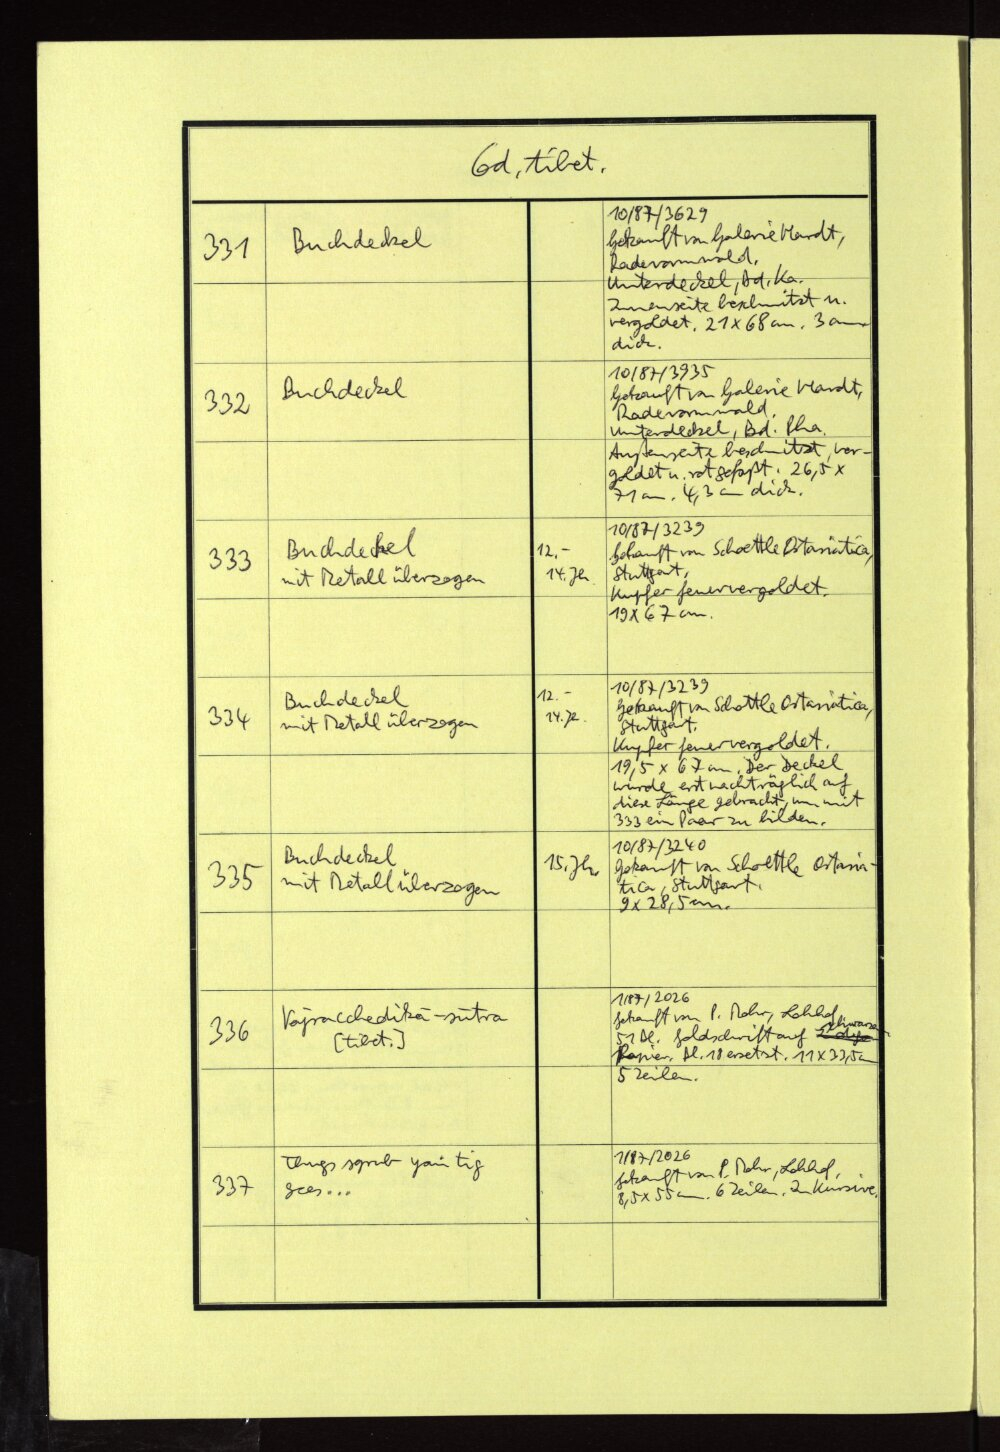 Cod. tibet.
331
Buchdeckel
10/87/3629
Gekauft von Galerie Hardt,
Radevormwald.
Unterdeckel, Bd. Ka.
Innenseite beschnitzt u.
vergoldet. 21 x 68 cm. 3 cm
dick.
332
Buchdeckel
10/87/3935
Gekauft von Galerie Hardt,
Radevormwald.
Unterdeckel, Bd. Pha.
Außenseite beschnitzt, ver-
goldet u. rot gefaßt. 26,5 x
71 cm. 4,3 cm dick.
333
Buchdeckel
mit Metall überzogen
12.-
14. Jh.
10/87/3239
Gekauft von Schoettle Ostasiatica,
Stuttgart.
Kupfer feuervergoldet.
19 x 67 cm.
334
Buchdeckel
mit Metall überzogen
12.-
14. Jh.
10/87/3239
Gekauft von Schoettle Ostasiatica,
Stuttgart.
Kupfer feuervergoldet.
19,5 x 67 cm. Der Deckel
wurde erst nachträglich auf
diese Länge gebracht, um mit
333 ein Paar zu bilden.
335
Buchdeckel
mit Metall überzogen
15. Jh.
10/87/3240
Gekauft von Schoettle Ostasia-
tica, Stuttgart.
9 x 28,5 cm.
336
Vajracchedikā-sūtra
[tibet.]
1/87/2026
Gekauft von P. Mohr, Lohhof.
51 Bl. Goldschrift auf schwarzem
Papier. Bl. 18 ersetzt. 11 x 33,5 cm
5 Zeilen.
337
Thugs sgrub yan tig
gces...
1/87/2026
Gekauft von P. Mohr, Lohhof.
8,5 x 55 cm. 6 Zeilen. In Kursive.